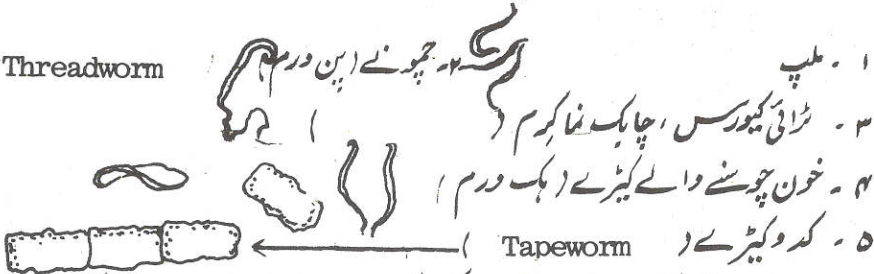 ۱ ۔ ملپ
۲۔ چمونے (پن ورم) Threadworm
۳ ۔ ٹرائی کیورس ، چابک نما کرم ( )
۴ ۔ خون چوسنے والے کیڑے (ہک ورم)
۵ ۔ کدو کیڑے ( Tapeworm )